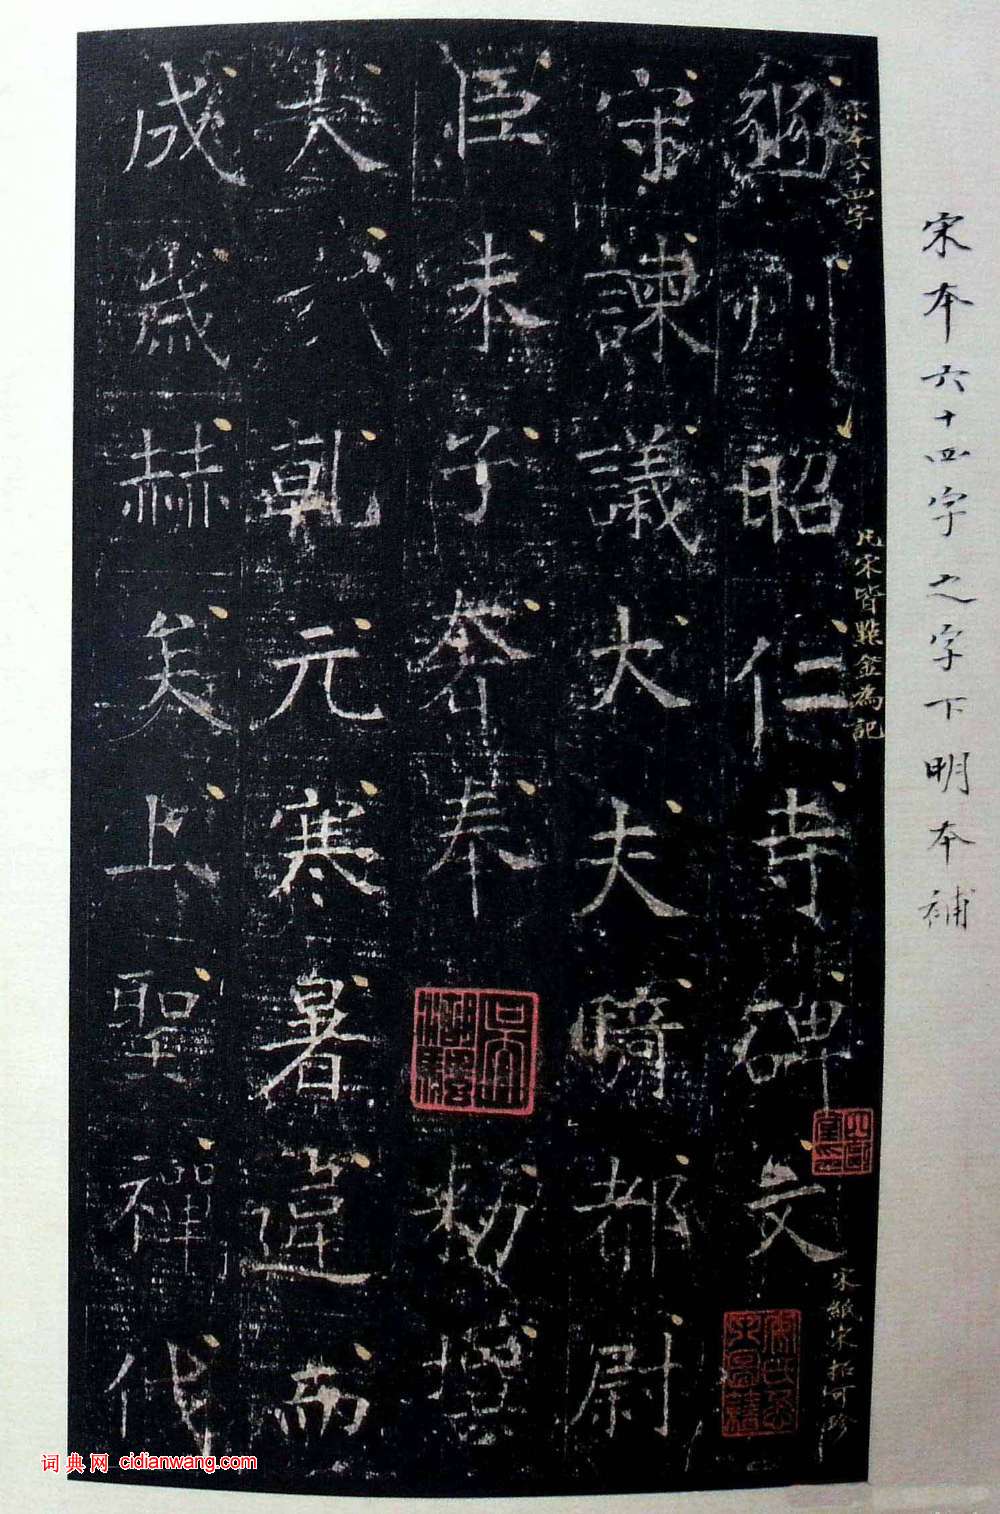 宋本六十四字之字下明本補
宋本六十四字
凡宋皆點金為記
宋紙宋拓可珍
豳州昭仁寺碑文
守諫議大夫騎都尉
臣朱子奢奉 勑撰
夫乾元寒暑違而
成歲赫矣上聖禪代
词典网 cidianwang.com